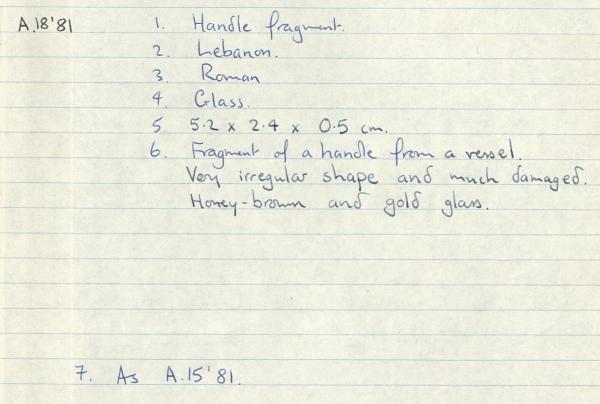 A.18'81 1. Handle fragment.
2. Lebanon.
3. Roman
4. Glass.
5. 5.2 x 2.4 x 0.5 cm.
6. Fragment of a handle from a vessel.
Very irregular shape and much damaged.
Honey-brown and gold glass.
7. As A.15'81.